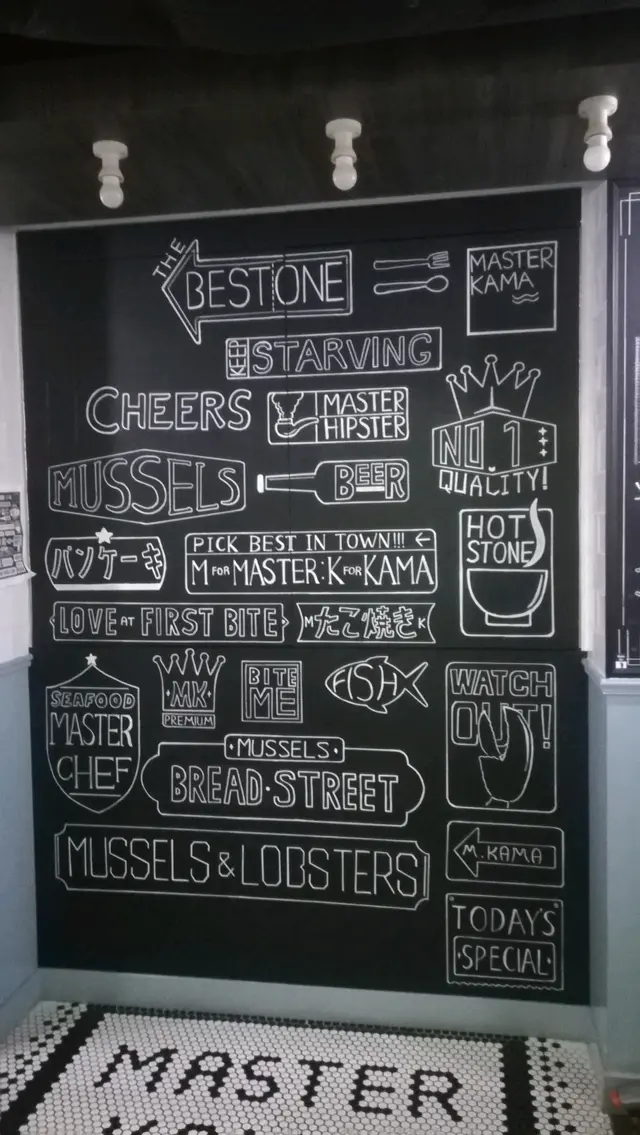 THE
BEST ONE
MASTER
KAMA
KEEP STARVING
CHEERS
MASTER
HIPSTER
NO.1
QUALITY!
MUSSELS
BEER
HOT
STONE
パンケーキ
PICK BEST IN TOWN!!! ←
M FOR MASTER·K FOR KAMA
LOVE AT FIRST BITE
M たこ焼き K
SEAFOOD
MASTER
CHEF
MK
PREMIUM
BITE
ME
FISH
WATCH
OUT!
MUSSELS
BREAD·STREET
MUSSELS & LOBSTERS
M.KAMA
TODAY'S
·SPECIAL·
MASTER